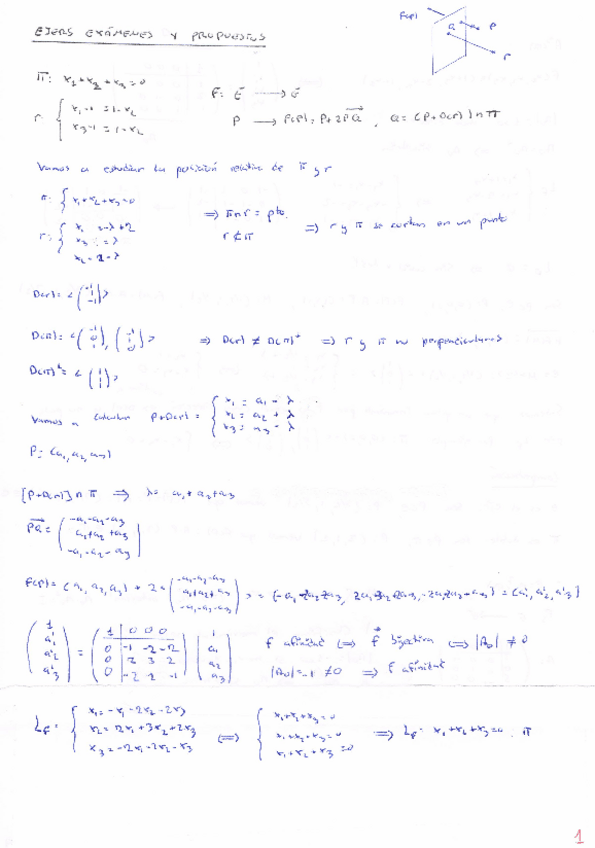 EJERS EXÁMENES Y PROPUESTOS
F(P)
Q
P
r
π: x₁+x₂+x₃=0
F: E → E
P → F(P)= P+2PQ, Q=(P+D(r))∩π
Vamos a estudiar la posición relativa de π y r
π: { x₁+x₂+x₃=0
⇒ π∩r = pto.
r⊄π
⇒ r y π se cortan en un punto
D(r)= <(-1 1 -1)>
D(π)= <(-1 0 1), (-1 1 0)> ⇒ D(r) ≠ D(π)⊥ ⇒ r y π no perpendiculares
D(π)⊥= <(1 1 1)>
Vamos a calcular P+D(r) = { x₁ = a₁ - λ
x₂ = a₂ + λ
x₃ = a₃ - λ
P= (a₁, a₂, a₃)
[P+D(r)]∩π ⇒ λ= a₁+a₂+a₃
PQ = (-a₁-a₂-a₃
a₁+a₂+a₃
-a₁-a₂-a₃)
F(P)= (a₁, a₂, a₃) + 2 (-a₁-a₂-a₃
a₁+a₂+a₃
-a₁-a₂-a₃)
= (a₁', a₂', a₃')
(1 a₁' a₂' a₃') = (1 | 0 0 0
0 | -1 -2 -2
0 | 2 3 2
0 | -2 -2 -1) (1 a₁ a₂ a₃)
f afinidad ⇔ f biyectiva ⇔ |A₀| ≠ 0
|A₀|=-1 ≠0 ⇒ f afinidad
L_F = { x₁=-x₁-2x₂-2x₃
x₂= 2x₁+3x₂+2x₃
x₃=-2x₁-2x₂-x₃
⇔ { x₁+x₂+x₃=0
x₁+x₂+x₃=0
x₁+x₂+x₃=0
⇒ L_F= x₁+x₂+x₃=0. π
1